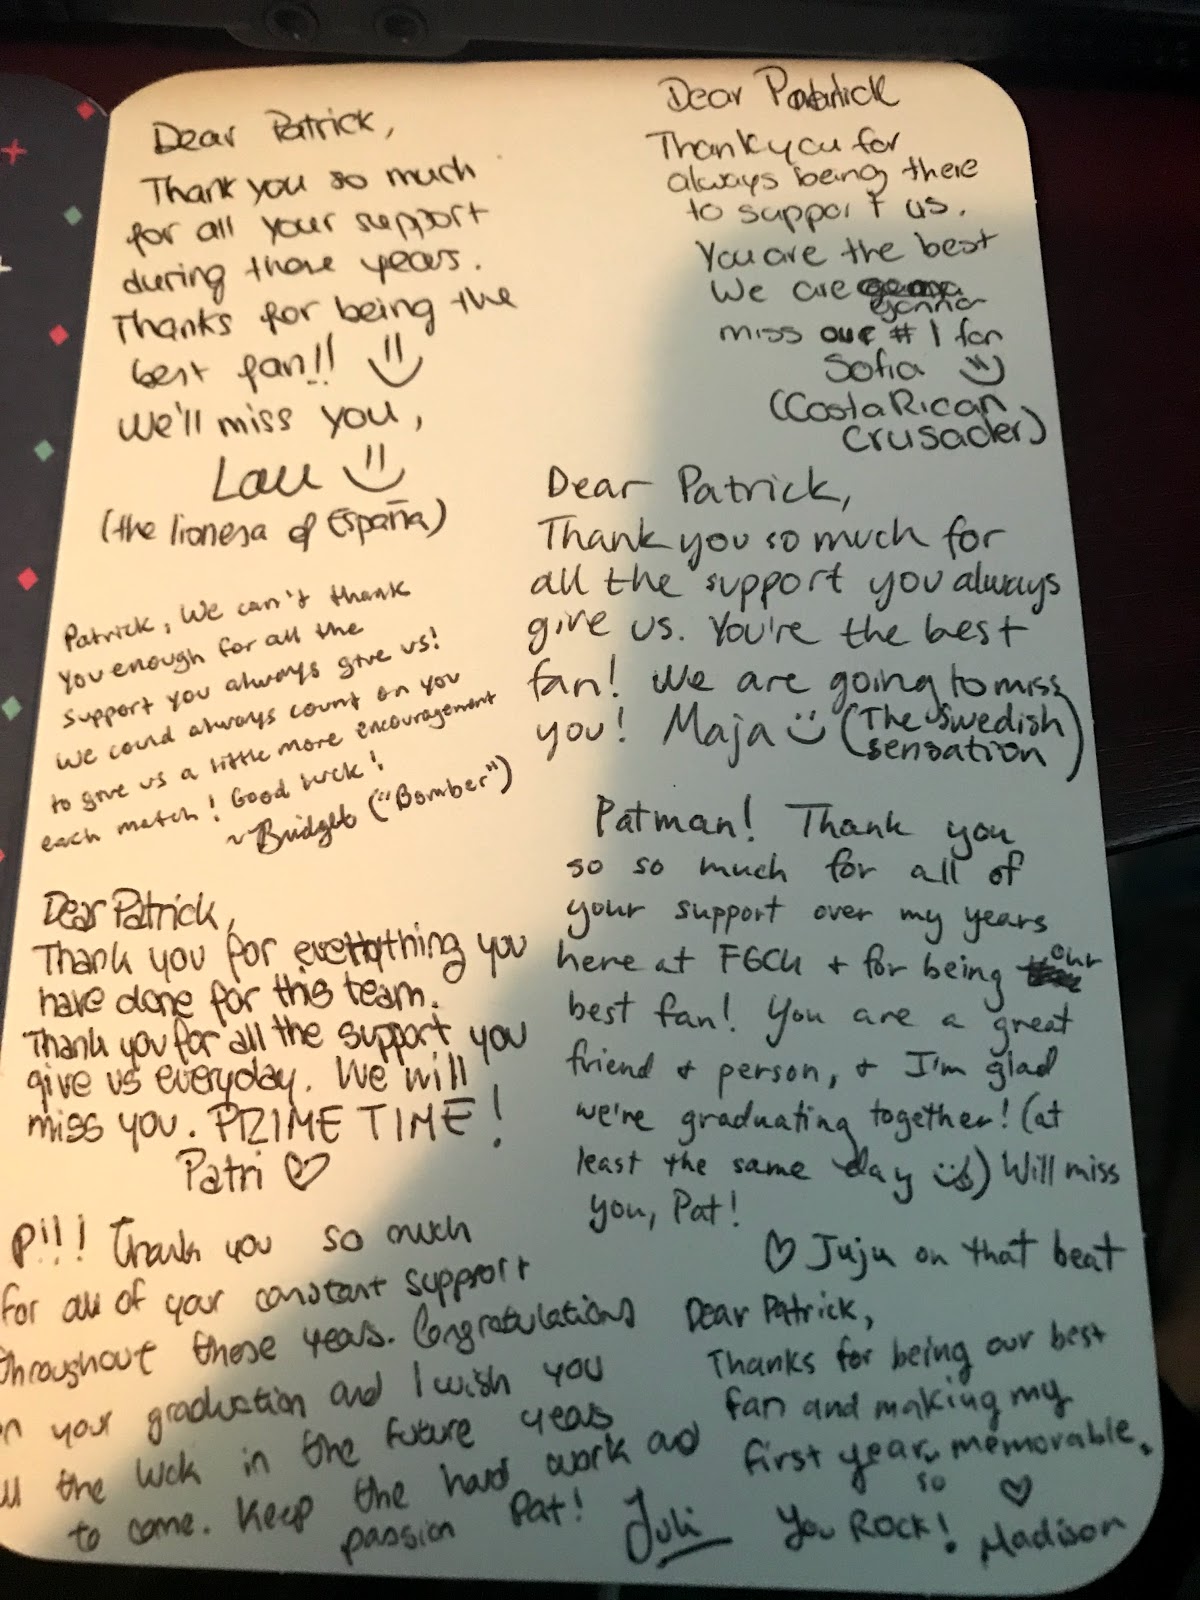 Dear Patrick,
Thank you so much
for all your support
during those years.
Thanks for being the
best fan!!
We'll miss you,
Lau
(the lionesa of España)
Dear Patrick
Thankyou for
always being there
to support us.
You are the best
We are gonna
miss our #1 fan
Sofia
(Costa Rican
Crusader)
Patrick, We can't thank
you enough for all the
support you always give us!
We could always count on you
to give us a little more encouragement
each match! Good luck!
~Bridget ("Bomber")
Dear Patrick,
Thank you so much for
all the support you always
give us. You're the best
fan! We are going to miss
you! Maja (The Swedish
sensation)
Dear Patrick,
Thank you for everything you
have done for this team.
Thank you for all the support you
give us everyday. We will
miss you. PRIME TIME!
Patri ♡
Patman! Thank you
so so much for all of
your support over my years
here at FGCU + for being our
best fan! You are a great
friend + person, + I'm glad
we're graduating together! (at
least the same day) Will miss
you, Pat!
♡ Juju on that beat
P!!! Thank you so much
for all of your constant support
throughout these years. Congratulations
on your graduation and I wish you
all the luck in the future years
to come. Keep the hard work and
passion Pat! Juli
Dear Patrick,
Thanks for being our best
fan and making my
first year so memorable.
You ROCK! ♡ Madison